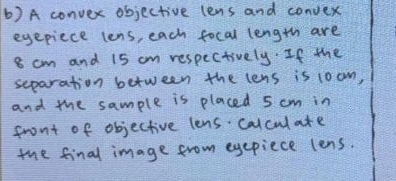 b) A convex objective lens and convex
eyepiece lens, each focal length are
8 cm and 15 cm respectively. If the
separation between the lens is 10 cm,
and the sample is placed 5 cm in
front of objective lens. Calculate
the final image from eyepiece lens.